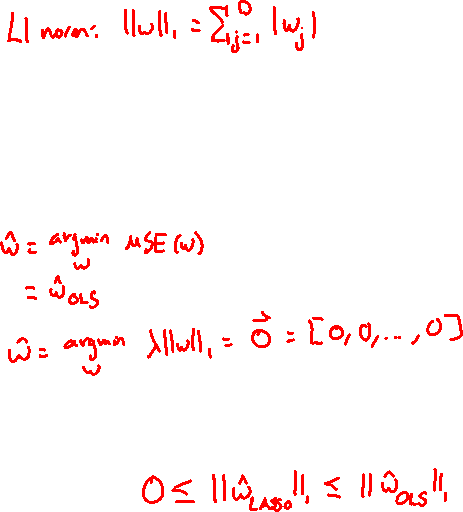 L1 norm: ||w||₁ = ∑ᴰⱼ₌₁ |wⱼ|
ŵ = argmin_w MSE(w)
= ŵ_OLS
ŵ = argmin_w λ||w||₁ = 0⃗ = [0, 0, ..., 0]
0 ≤ ||ŵ_LASSO||₁ ≤ ||ŵ_OLS||₁